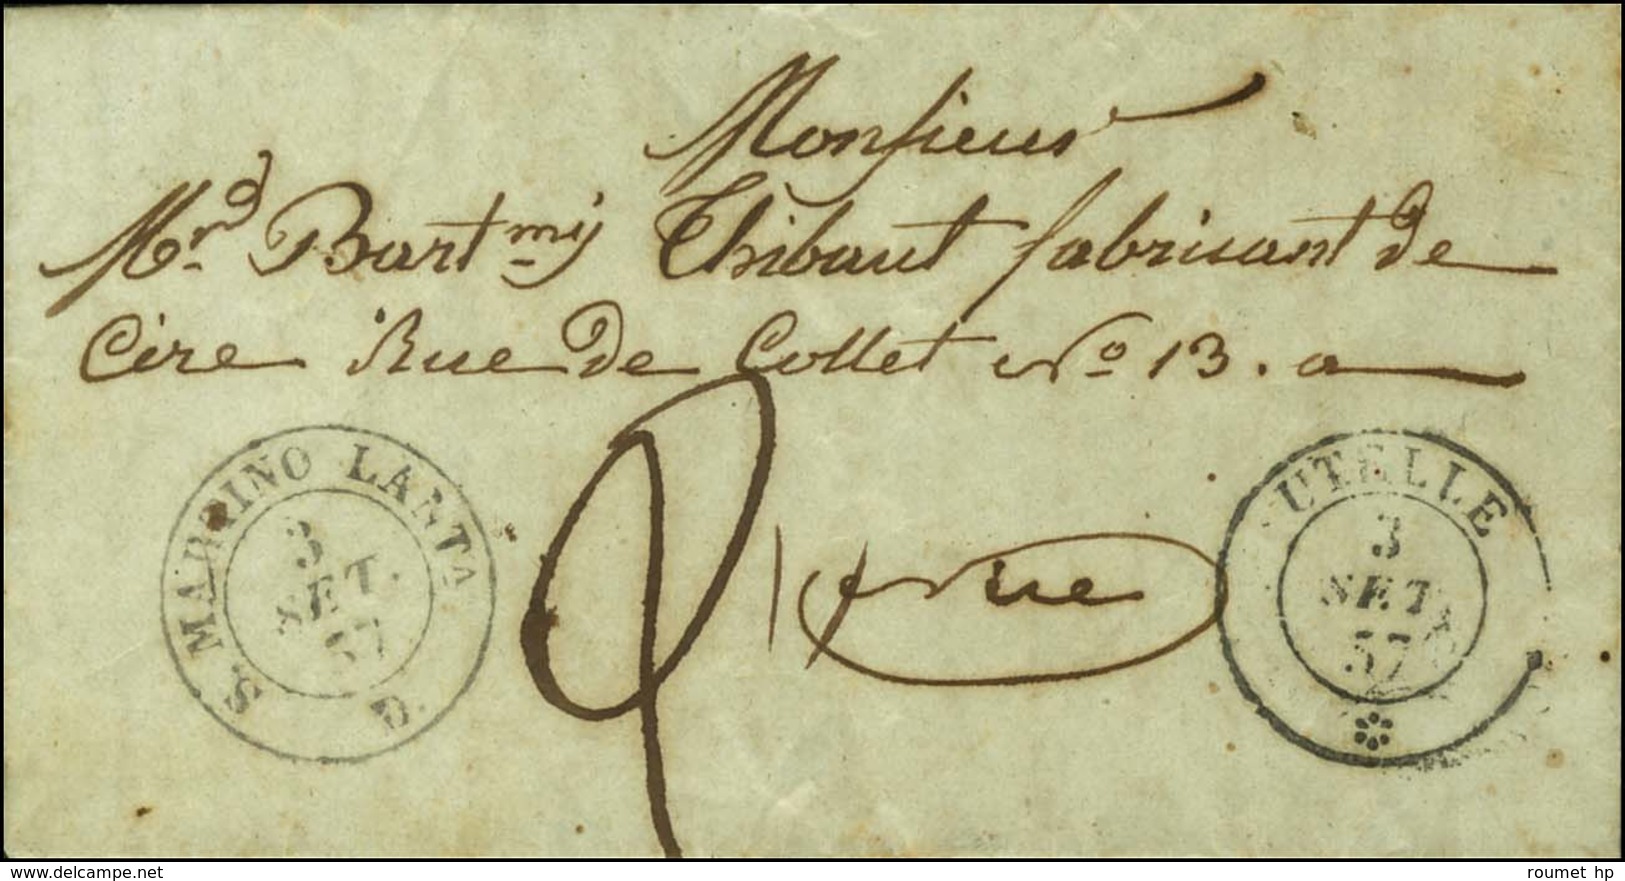 Monsieur
M.rd Bart.my Thibaut fabricant de
Cire Rue de Collet No 13. a
S. MARTINO LANTA
3
SET.
57
D.
UTELLE
3
SET
57
delcampe.net
roumet hp